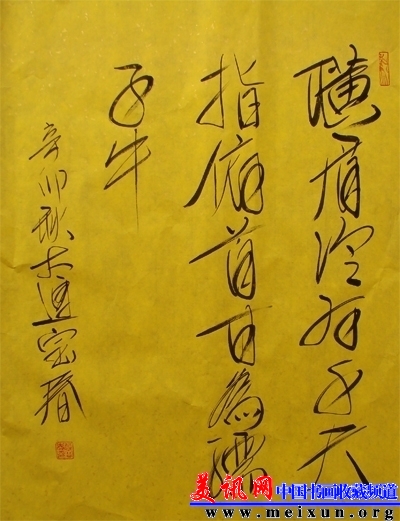 横眉冷对千夫
指俯首甘為孺
子牛
辛卯秋
美讯网 中国书画收藏频道
www.meixun.org